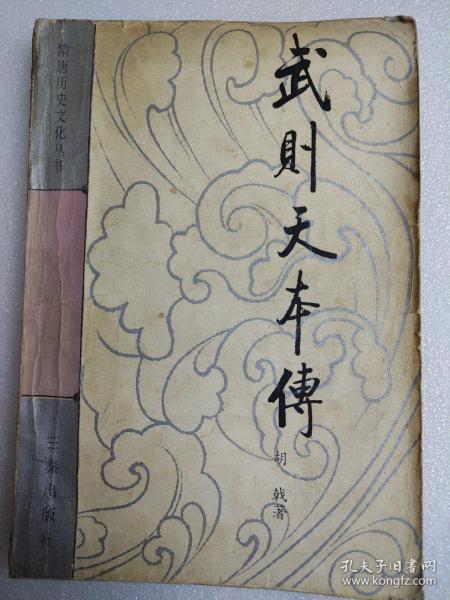 隋唐历史文化丛书
武則天本傳
胡戟著
三秦出版社
孔夫子旧书网
www.kongfz.com